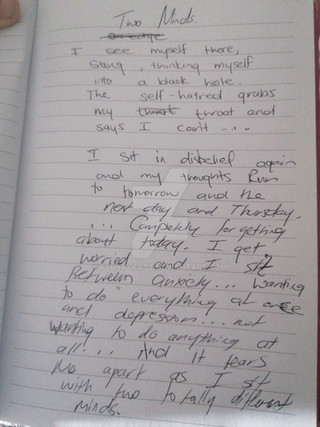 Two Minds.
On edge
I see myself there,
Story, thinking myself
into a black hole.
The self-hatred grabs
my throat throat and
says I can't ....
I sit in disbelief again
and my thoughts Run
to tomorrow and the
next day and Thursday.
... Completely forgetting
about today. I get
worried and I sit
Between anxiety... wanting
to do everything at once
and depression.... not
wanting to do anything at
all... And it tears
Me apart as I sit
with two totally different
Minds.